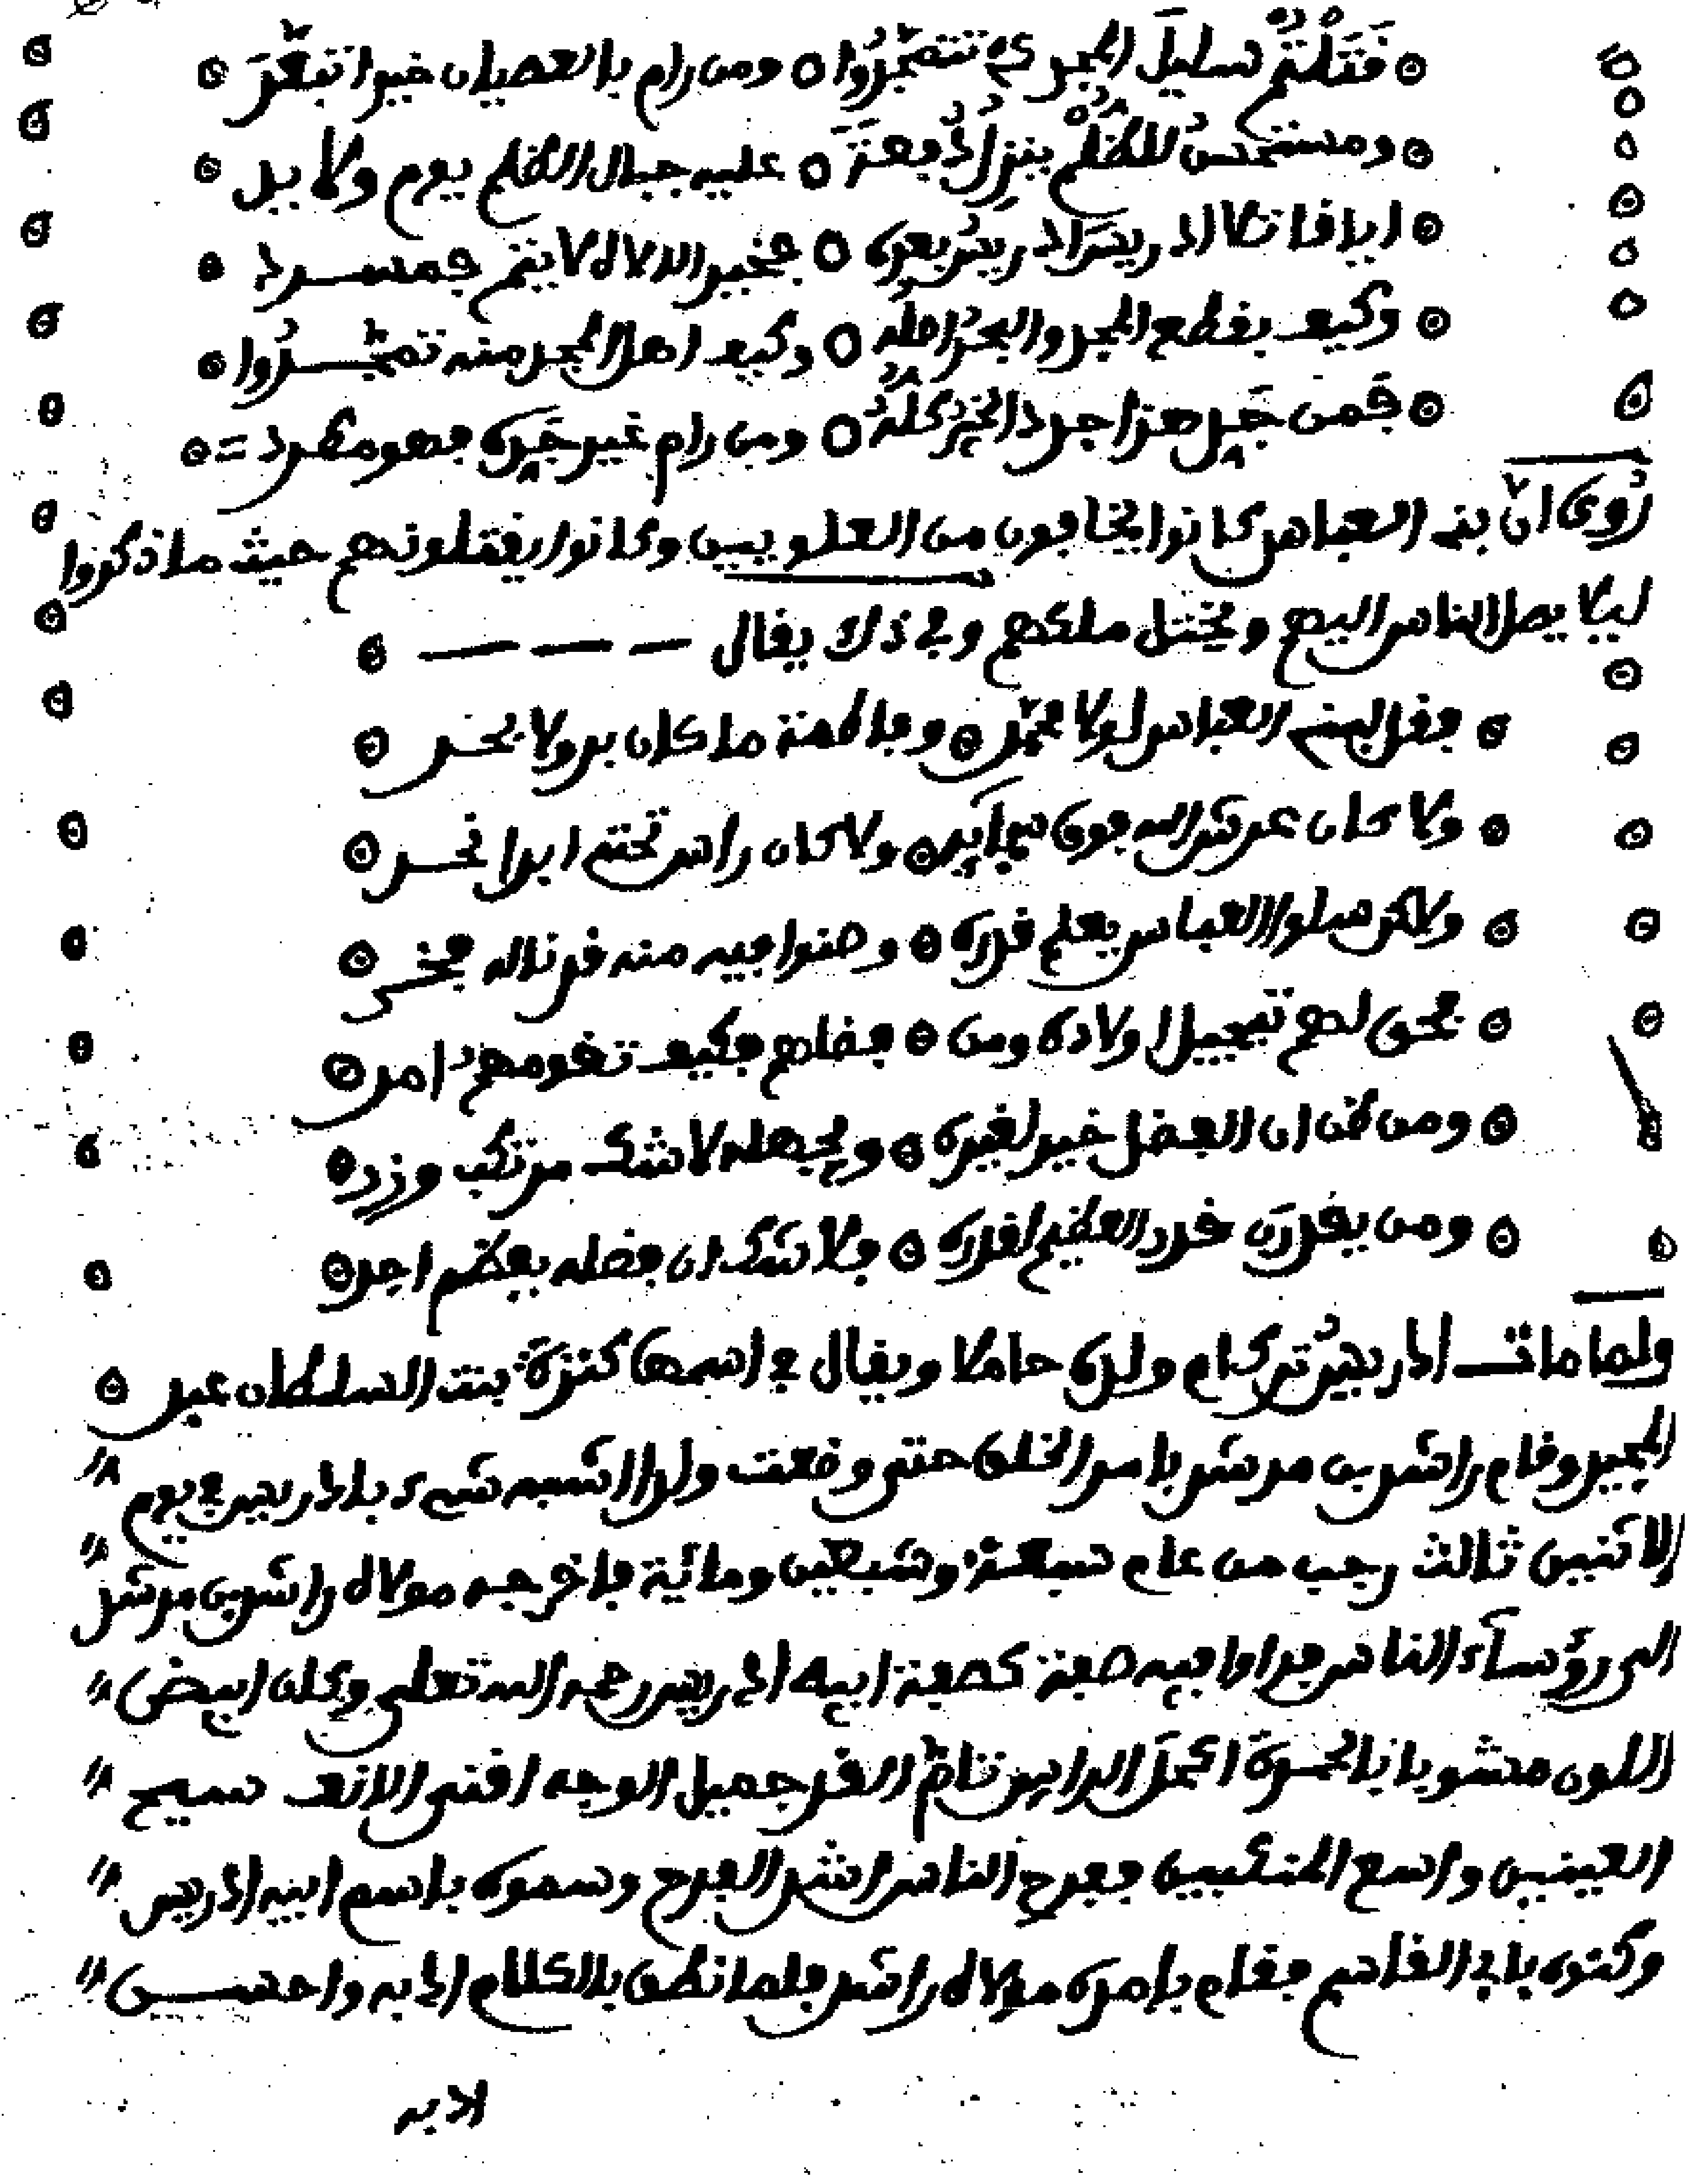 قتلتم سليل المجد كي تتمجدوا ومن رام بالعصيان خيرا تبعد
ومستحسن للظلم ينزل دفعة عليه جبال الظلم يوم ولا يبل
ايا قاتلا ادريس ادريس بعده فخير الدلالا يتم فمسرد
وكيف يقطع المجد والبحر اصله وكيف اهل المجد منه تمجدوا
فمن جده هذا جدد الخير كله ومن رام غير جده فهو مطرد
روي ان بني العباس كانوا يخافون من العلويين وكانوا يقتلونهم حيث ما ذكروا
ليلا يصل الناس اليهم ويختل ملكهم وفي ذلك يقال
فقل لبني العباس لولا محمد وفاطمة ما كان بر ولا بحر
ولا كان عرش الله فوق سمائه ولا كان راس تحته ابدا نحر
ولاكن سلوا العباس يعلم قدره وصنوا فيه منه قد ناله فخر
فحق لهم تبجيل اولاده ومن جفاهم فكيف تقومهم امر
ومن ظن ان الفضل خير لغيره ويجهله لا شك مرتكب وزر
ومن يقدرن قدر العظيم لقدره فلا شك ان فضله يعظم اجر
ولما مات ادريس ترك ام ولده حاملا ويقال في اسمها كنزة بنت السلطان عبد
المجيد وقام راشد بن مرشد بامر الخلق حتى وضعت ولدا اشبه شيء بادريس في يوم
الاثنين ثالث رجب من عام سبعة وسبعين ومائة فاخرجه مولاه راشد بن مرشد
الى رؤساء الناس فراوا فيه صفة كصفة ابيه ادريس رحمه الله تعلى وكان ابيض
اللون مشوبا بالحمرة اكحل العينين تام القد جميل الوجه اقنى الانف مليح
العينين واسع المنكبين ففرح الناس اشد الفرح وسموه باسم ابيه ادريس
وكنوه بابي القاسم فقام بامره مولاه راشد فلما نطق بالكلام ادبه واحسن
ادبه